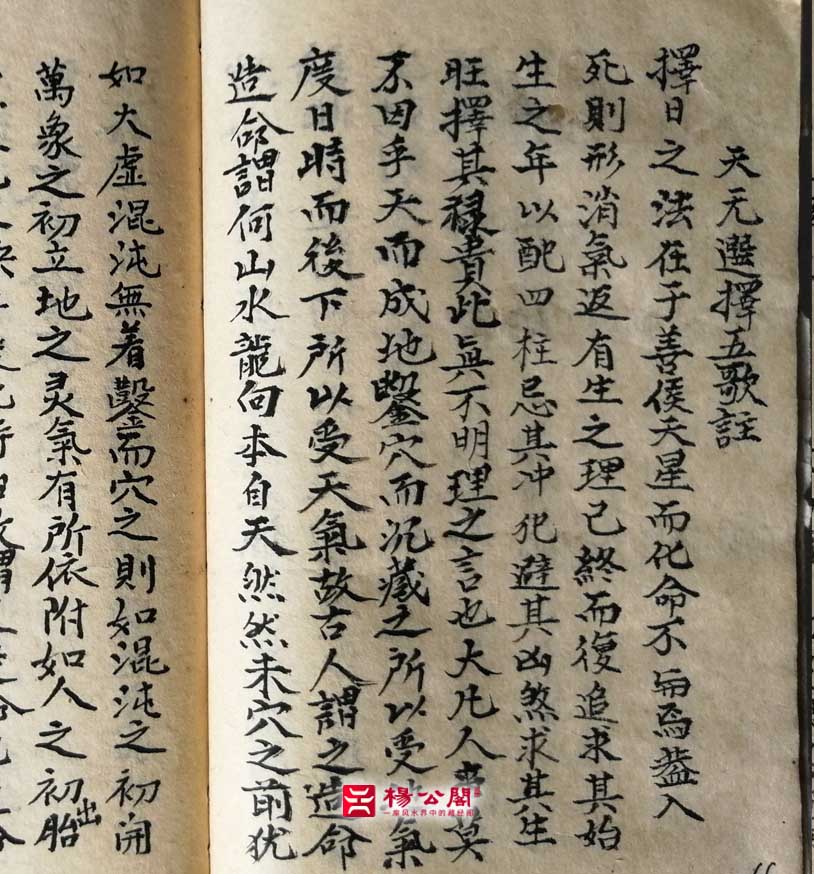 天元選擇五歌註
擇日之法在于善侯天星而化命不與焉蓋入
死則形消氣返有生之理已終而復追求其始
生之年以配四柱忌其冲犯避其凶煞求其生
旺擇其祿貴此真不明理之言也大凡人事莫
不因乎天而成地鑿穴而沉藏之所以受氣
度日時而後下所以受天氣故古人謂之造命
造命謂何山水龍向本自天然然未穴之前犹
如大虛混沌無着鑿而穴之則如混沌之初開
萬象之初立地之灵氣有所依附如人之初出胎
楊公閣
一座风水界中的藏经阁